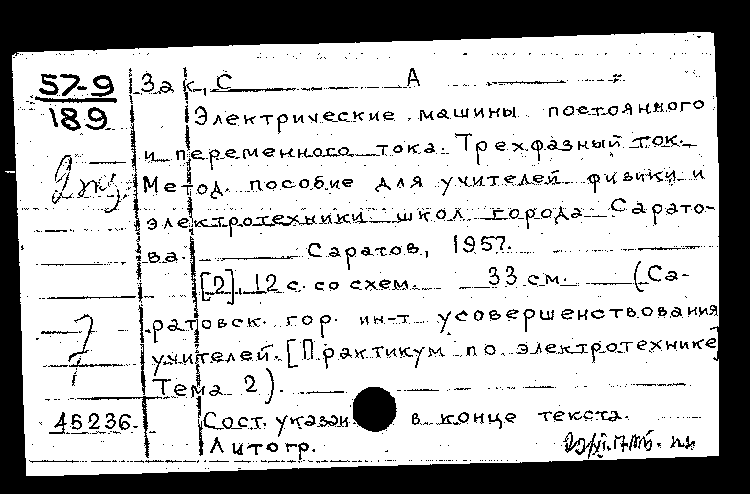 57-9
189
2 экз.
7
45236.
Зак, С А
Электрические машины постоянного
и переменного тока. Трехфазный ток.
Метод. пособие для учителей физики и
электротехники школ города Сарато-
ва. Саратов, 1957.
[2], 12 с. со схем. 33 см. (Са-
ратовск. гор. ин-т усовершенствования
учителей. [Практикум по электротехнике]
Тема 2).
Сост. указан в конце текста.
Литогр.